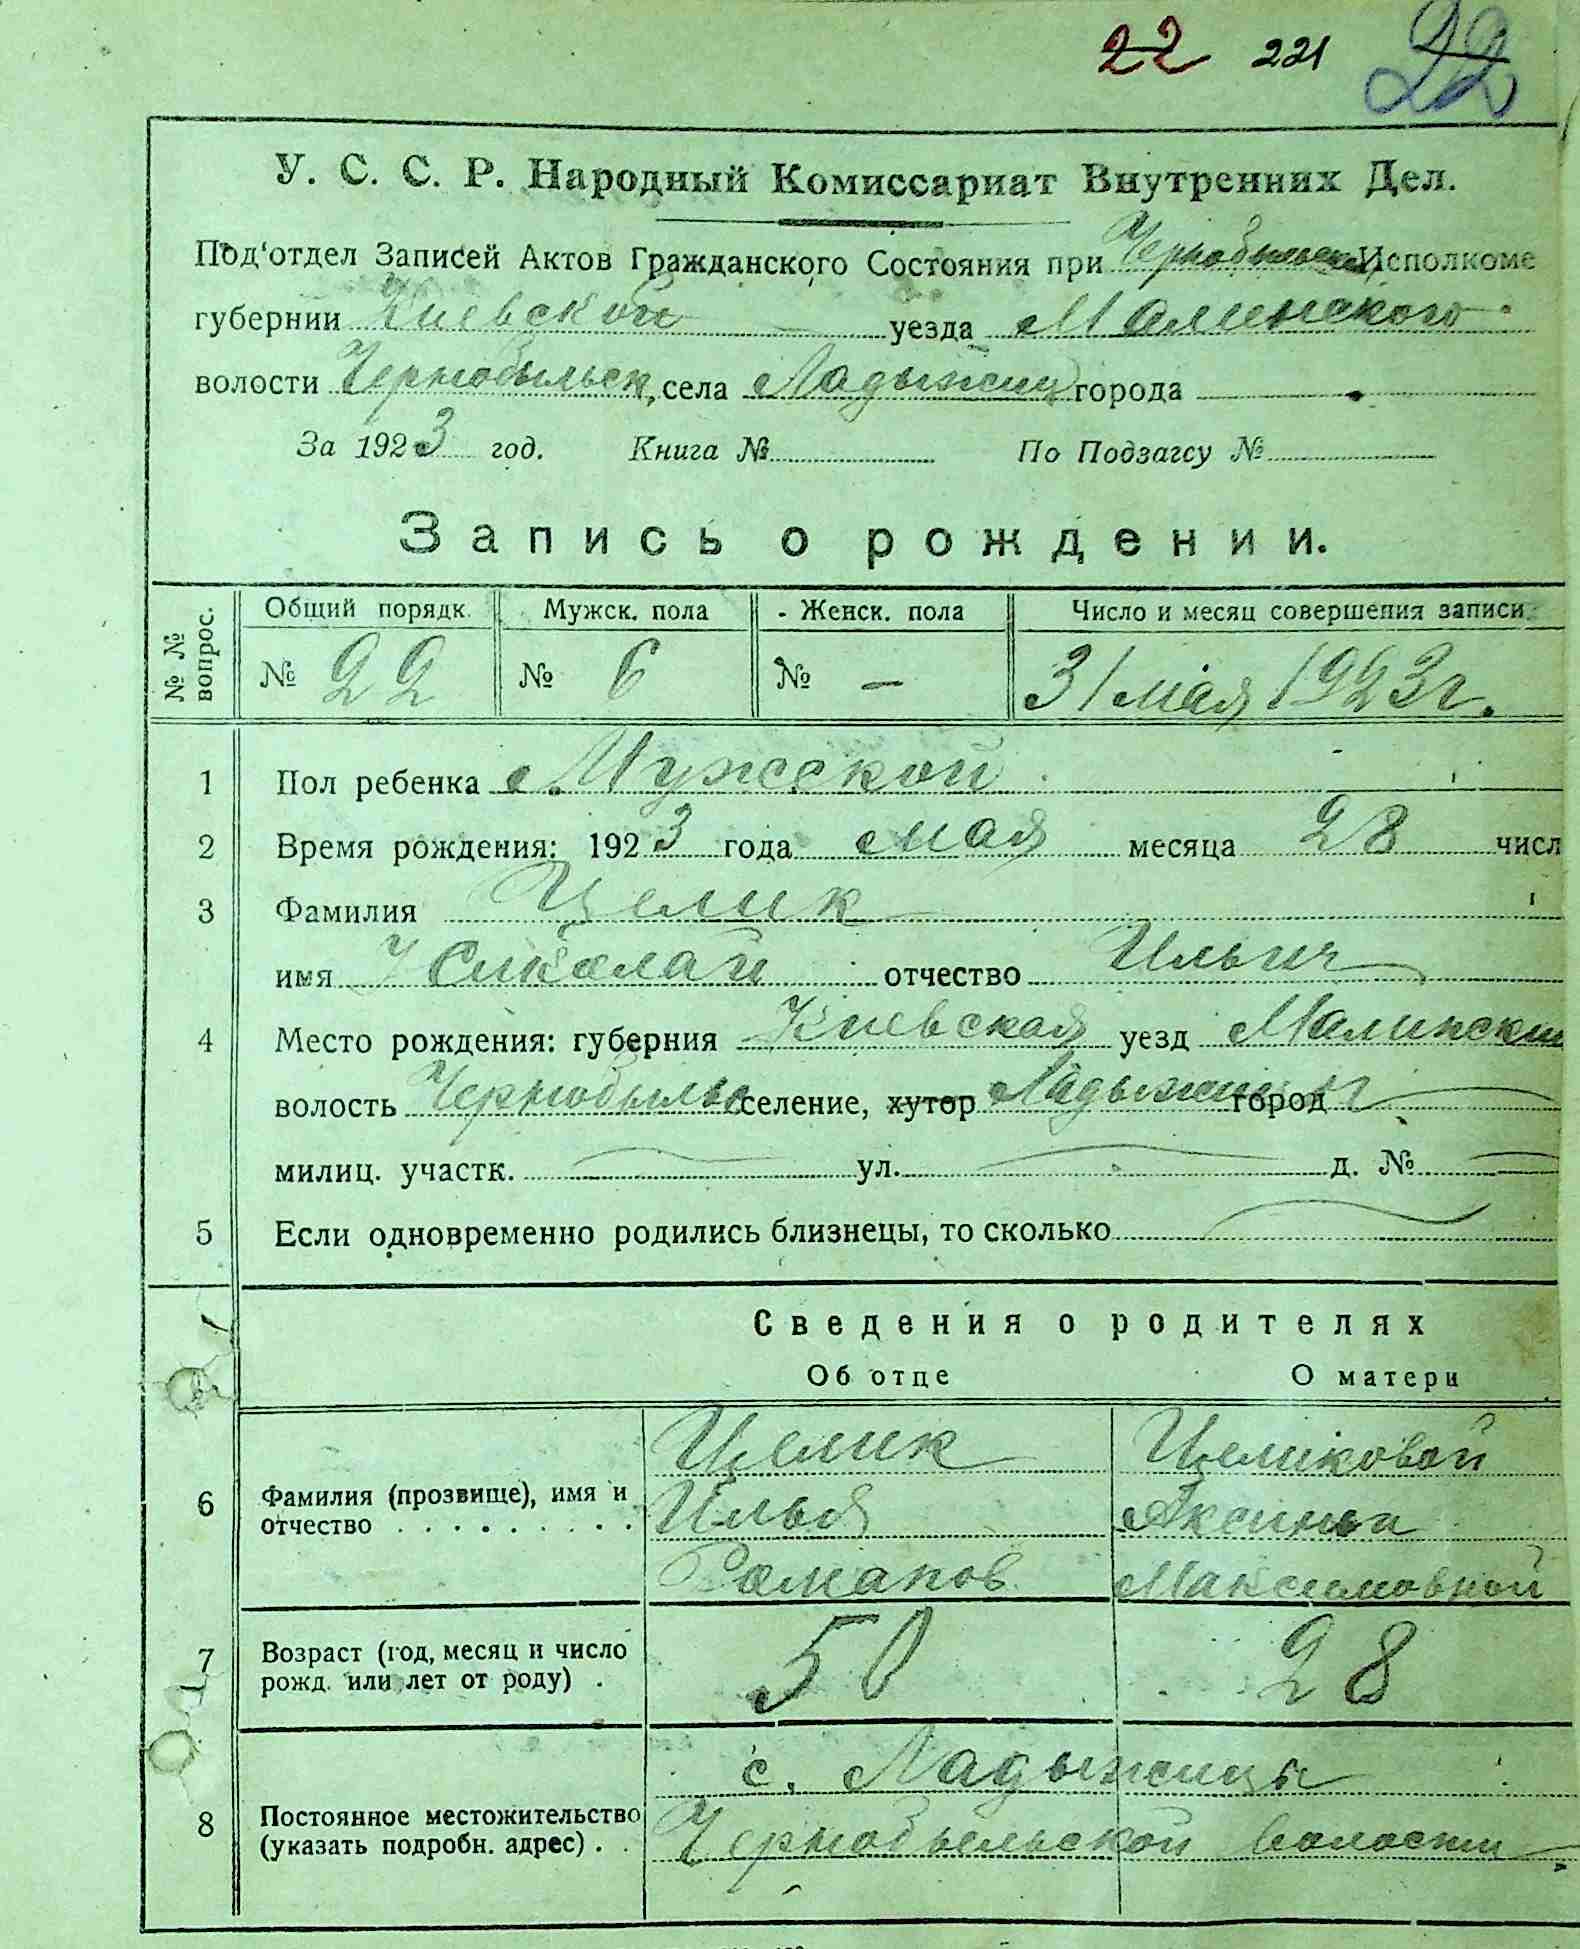 22 221 22
У. С. С. Р. Народный Комиссариат Внутренних Дел.
Под'отдел Записей Актов Гражданского Состояния при Чернобыльск. Исполкоме
губернии Киевской уезда Малинского
волости Чернобыльск, села Ладыжичи города
За 1923 год. Книга № По Подзагсу №
Запись о рождении.
№№ вопрос. Общий порядк. Мужск. пола Женск. пола Число и месяц совершения записи
№ 22 № 6 № — 31 мая 1923 г.
1 Пол ребенка Мужской
2 Время рождения: 1923 года мая месяца 28 числ
3 Фамилия Целик
имя Николай отчество Ильич
4 Место рождения: губерния Киевская уезд Малинский
волость Чернобыльс селение, хутор Ладыжичи город
милиц. участк. ул. д. №
5 Если одновременно родились близнецы, то сколько
Сведения о родителях
Об отце О матери
Целик Целиковой
6 Фамилия (прозвище), имя и отчество Илья Аксинья
Романов Максимовной
7 Возраст (год, месяц и число рожд. или лет от роду) 50 28
с. Ладыжичи
8 Постоянное местожительство (указать подробн. адрес) Чернобыльской волости